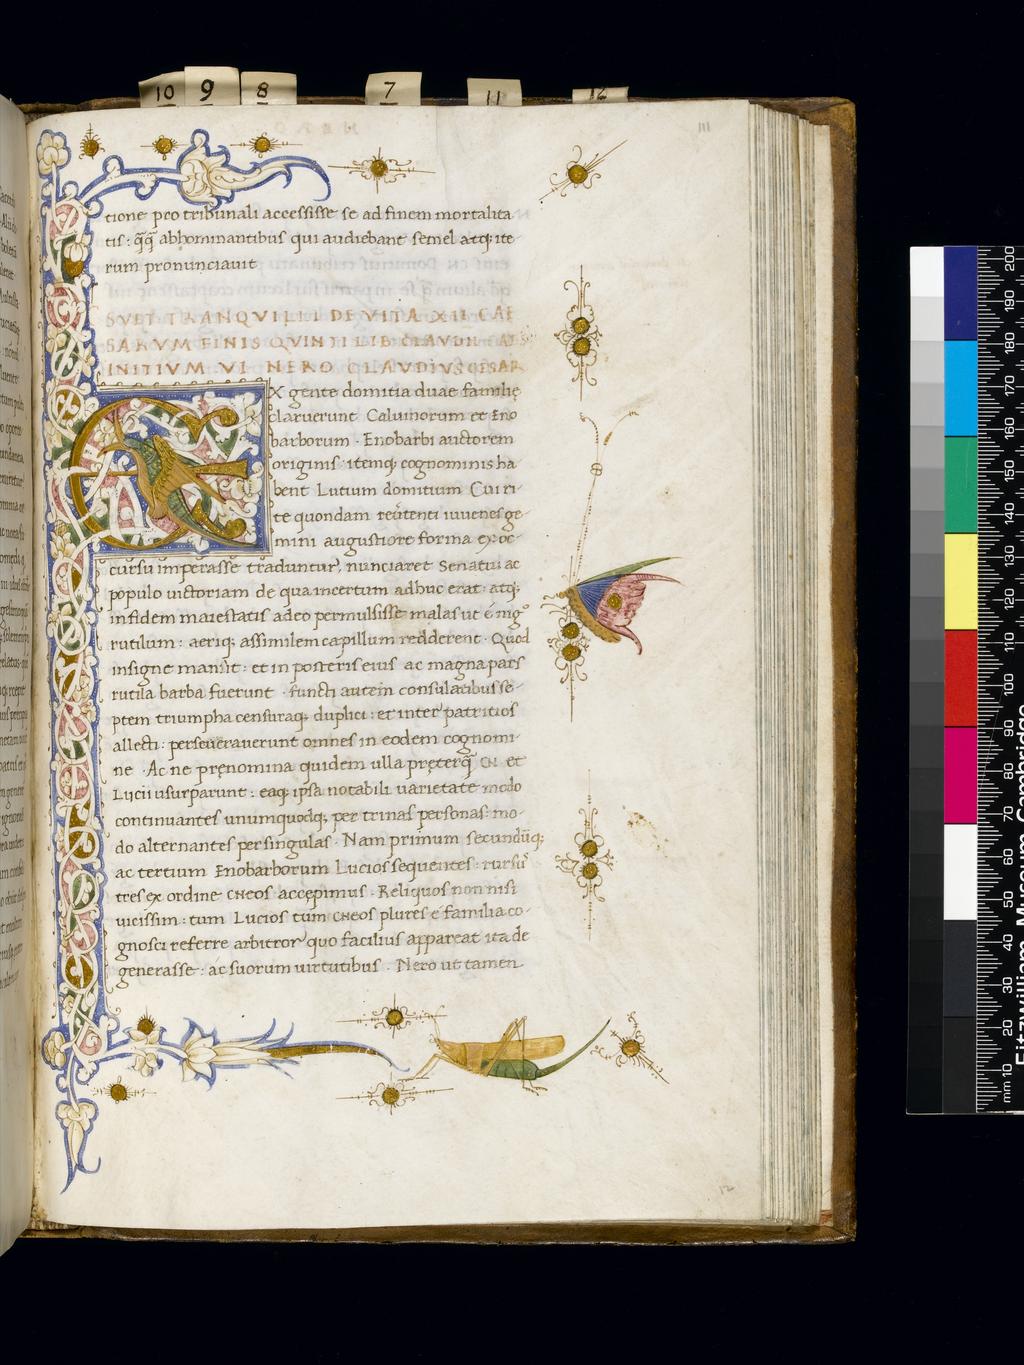 10 9 8 7 11 12
111
tione pro tribunali accessisse se ad finem mortalita
tis: q̃q̃ abhominantibus qui audiebant semel atq; ite-
rum pronunciauit
SVET TRANQVILLI DE VITA XII CAE
SARVM FINIS QVINTI LIB CLAVDII
INITIVM VI NERO CLAVDIVS CESAR
EX gente domitia duae familię
claruerunt Caluinorum et Eno
barborum · Enobarbi auctorem
originis: itemq; cognominis ha
bent Lutium domitium Cui ri-
te quondam reũtenti iuuenes ge-
mini augustiore forma ex oc-
cursu imperasse traduntur, nunciaret Senatui ac
populo uictoriam de qua incertum adhuc erat: atq;
in fidem maiestatis adeo permulsisse malas ut e nig°
rutilum: aeriq; assimilem capillum redderent · Quod
insigne mansit: et in posteris eius ac magna pars
rutila barba fuerunt · Functi autem consulatibus se-
ptem triumpha censuraq; duplici: et inter patritios
allecti: perseuerauerunt omnes in eodem cognomi-
ne · Ac ne pręnomina quidem ulla pręterq̃ CN et
Lucii usurparunt: eaq; ipsa notabili uarietate modo
continuantes unumquodq; per trinas personas: mo-
do alternantes per singulas · Nam primum secundũq;
ac tertium Enobarborum Lucios sequentes: rursũ
tres ex ordine CNEOS accepimus · Reliquos non nisi
uicissim: tum Lucios tum CNEOS plures e familia co-
gnosci referre arbitror quo facilius appareat ita de
generasse: a suorum uirtutibus · Nero ut tamen
12
mm 10 20 30 40 50 60 70 80 90 100 110 120 130 140 150 160 170 180 190 200
Fitzwilliam Museum Cambridge